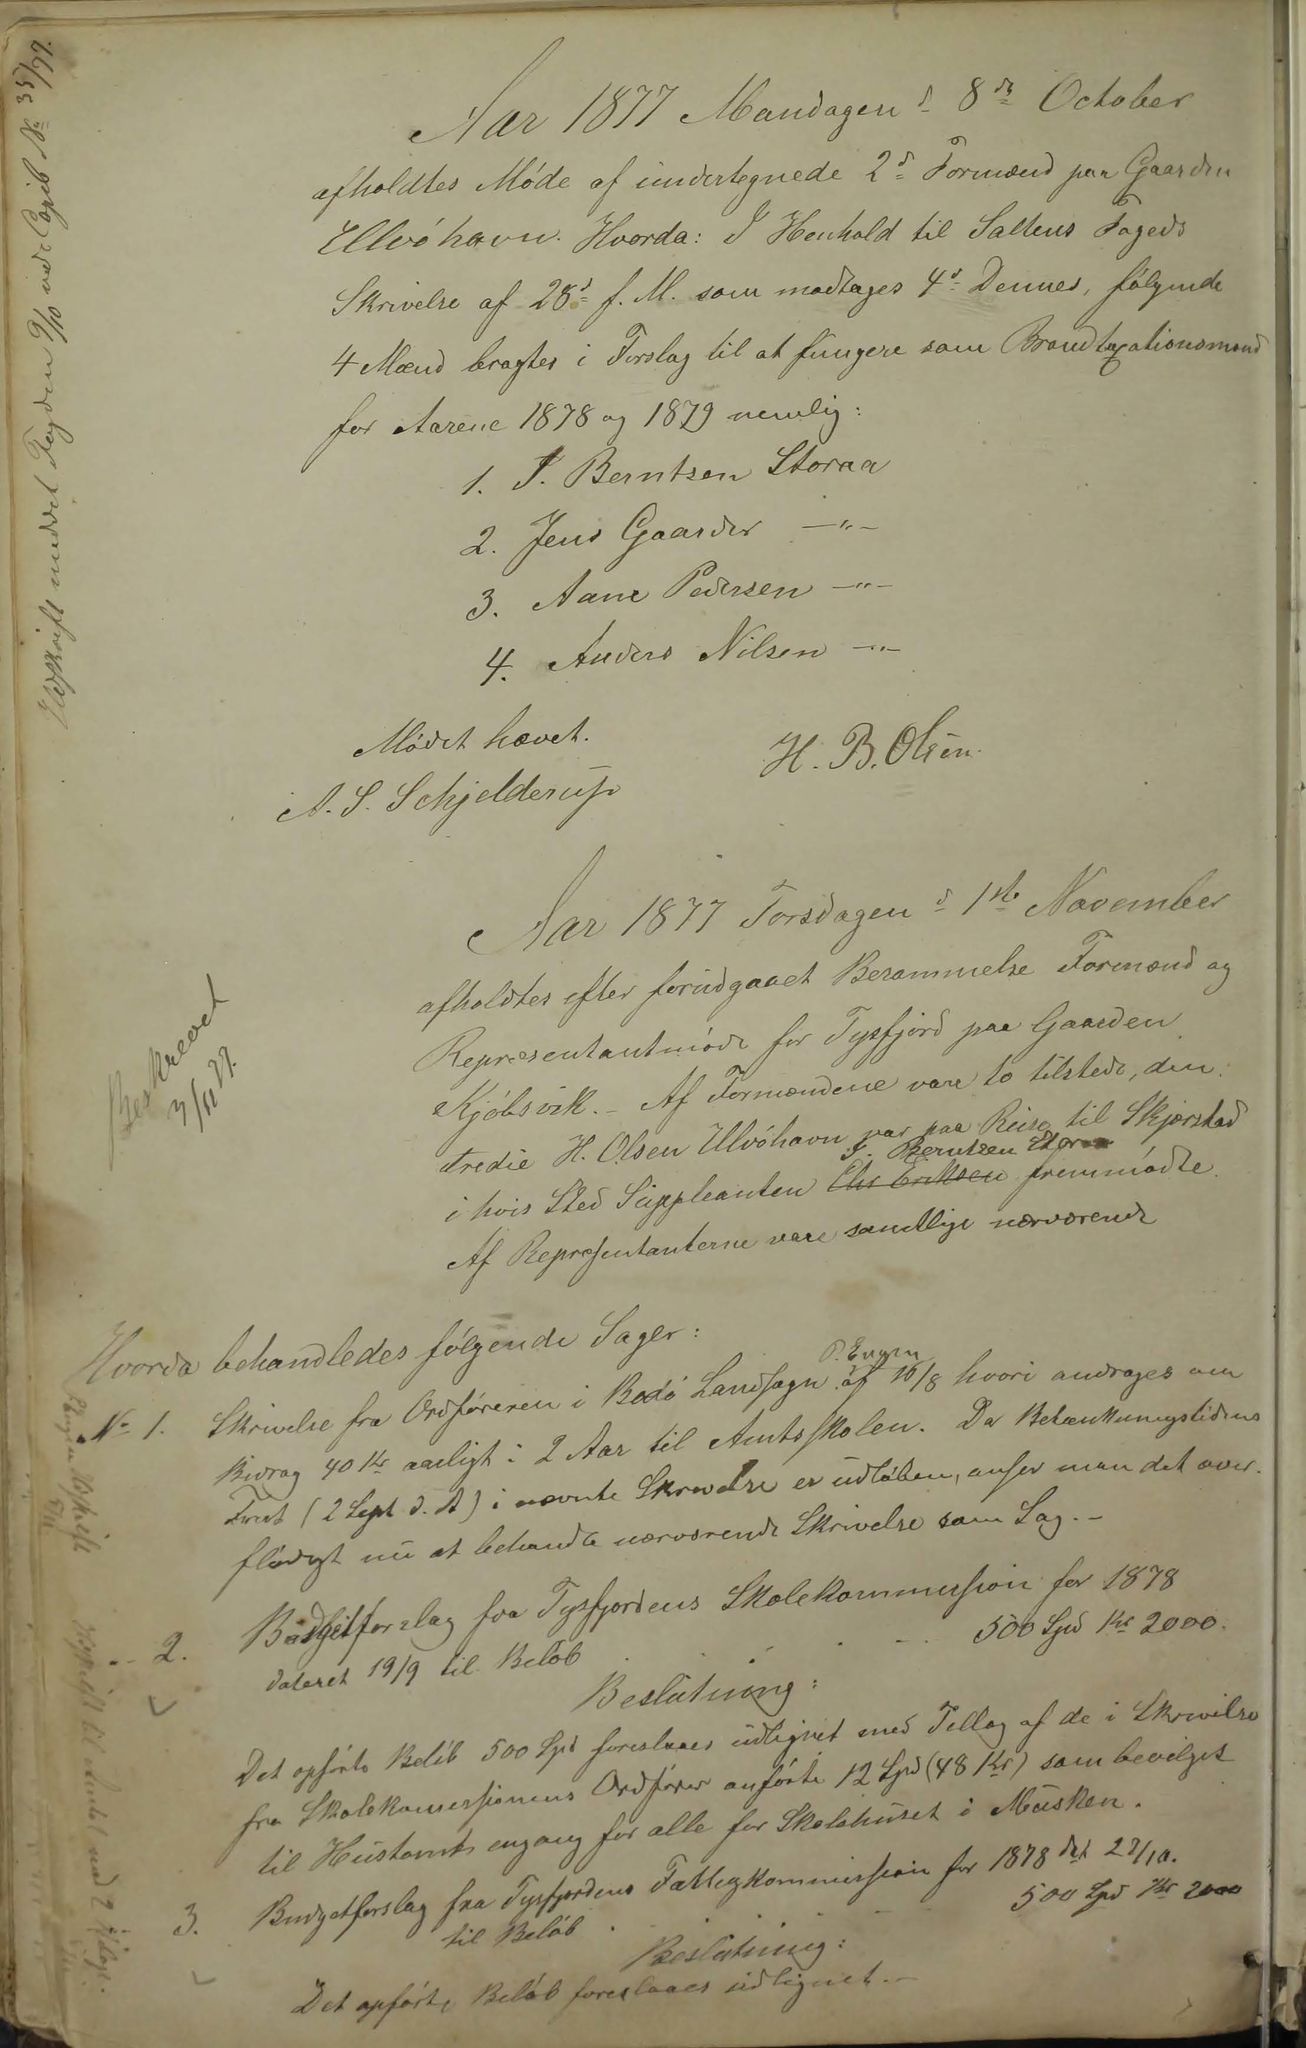 Aar 1877 Mandagen d 8de October
afholdtes Møde af undertegnede 2d Formænd paa Gaarden
Ulvøhavn. Hvorda: I Henhold til Saltens Fogeds
Skrivelse af 28d f. M. som modtages 4d Dennes, følgende
4 Mænd bragtes i Forslag til at fungere som Brandtaxationsmænd
for Aarene 1878 og 1879 nemlig:
1. J. Berntsen Storaa
2. Jens Gaarder —"—
3. Aane Pedersen —"—
4. Anders Nilsen —"—
Mødet hævet.
A. S. Schjelderup
H. B. Olsen.
Udskrift sendt Fogden 9/10 ved Copib No 35/77.
Aar 1877 Torsdagen d 1ste November
afholdtes efter forudgaaet Berammelse Formænd og
Repræsentantmøde for Tysfjord paa Gaarden
Kjøbsvik. – Af Formændene vare to tilstede, den
tredie H. Olsen Ulvøhavn var paa Reise til Skjerstad
J. Berntsen Storaa
i hvis Sted Suppleanten Chr Eriksen fremmødte.
Af Repræsentanterne vare samtlige nærværende
Beskrevet
3/11 77.
Hvorda behandledes følgende Sager:
P. Engen
No 1. Skrivelse fra Ordføreren i Bodø Landsogn af 16/8 hvori andrages om
Bidrag 40 Kr aarligt i 2 Aar til Amtsskolen. Da Betænkningstidens
Frist (2 Sept d. A) i nævnte Skrivelse er udløben, anser man det over-
flødigt nu at behandle nærværende Skrivelse som Sag. –
2. Budgetforslag fra Tysfjordens Skolekommission for 1878
dateret 19/9 til Beløb 500 Spd Kr 2000.
Beslutning:
Det opførte Beløb 500 Spd foreslaaes udlignet med Tillæg af de i Skrivelse
fra Skolekomissionens Ordfører anførte 12 Spd (48 Kr) som bevilget
til Hustomt engang for alle for Skolehuset i Musken.
3. Budgetforslag fra Tysfjordens Fattigkommission for 1878 dat 27/10.
til Beløb 500 Spd Kr 2000
Beslutning:
Det opførte Beløb foreslaaes udlignet. –